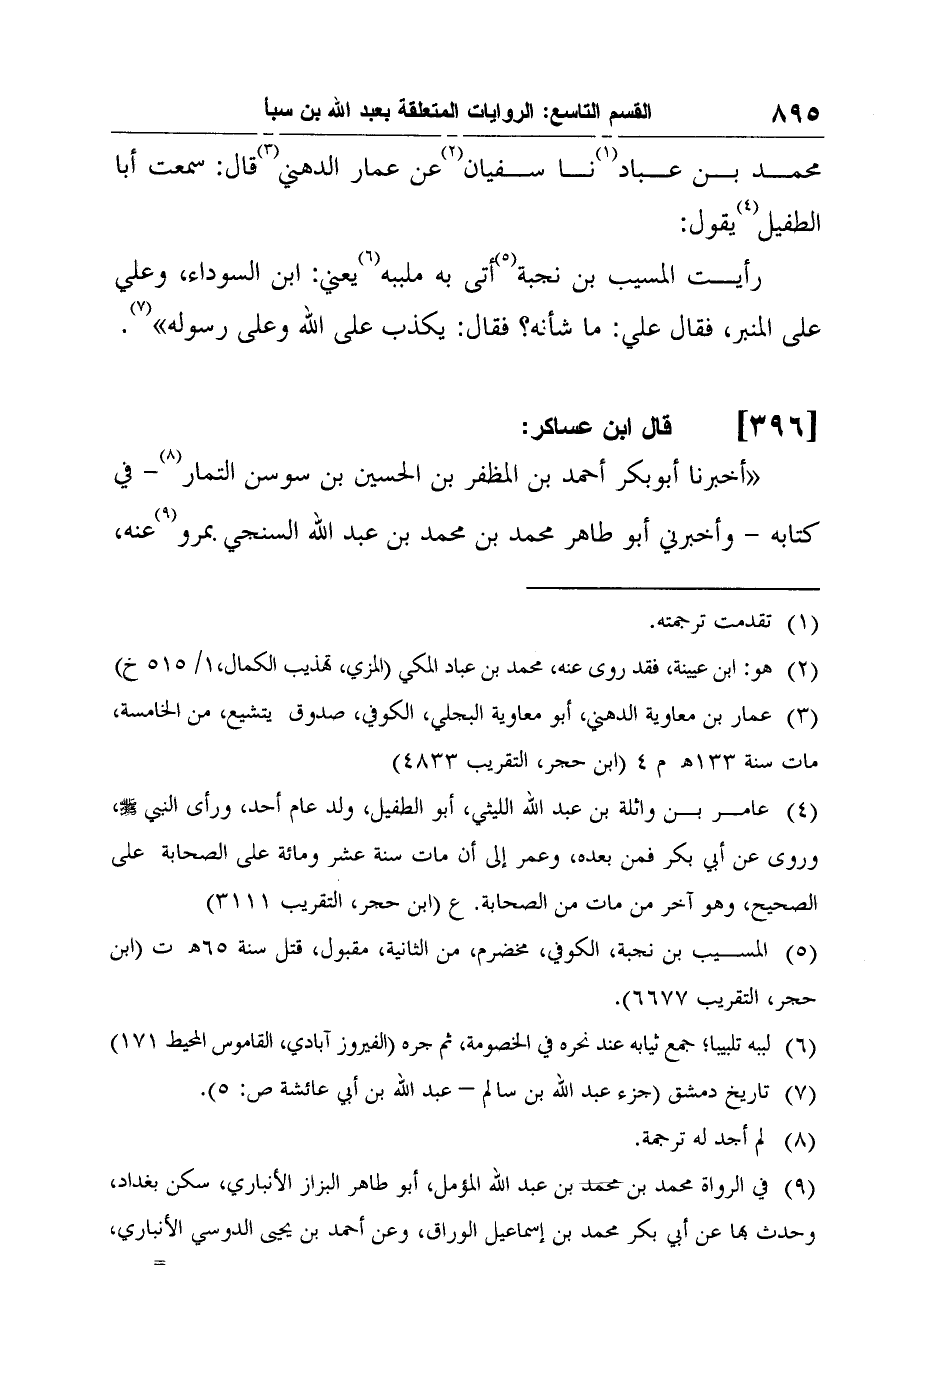 القسم التاسع: الروايات المتعلقة بعبد الله بن سبأ ٨٩٥
محمد بن عباد(١) نا سفيان(٢) عن عمار الدهني(٣) قال: سمعت أبا
الطفيل(٤) يقول:
رأيت المسيب بن نجبة(٥) أتى به ملببه(٦) يعني: ابن السوداء، وعلي
على المنبر، فقال علي: ما شأنه؟ فقال: يكذب على الله وعلى رسوله»(٧).
[٣٩٦] قال ابن عساكر:
«أخبرنا أبوبكر أحمد بن المظفر بن الحسين بن سوسن التمار(٨) – في
كتابه – وأخبرني أبو طاهر محمد بن محمد بن عبد الله السنجي بمرو(٩) عنه،
(١) تقدمت ترجمته.
(٢) هو: ابن عيينة، فقد روى عنه، محمد بن عباد المكي (المزي، تهذيب الكمال، ١/ ٥١٥ خ)
(٣) عمار بن معاوية الدهني، أبو معاوية البجلي، الكوفي، صدوق يتشيع، من الخامسة،
مات سنة ١٣٣هـ م ٤ (ابن حجر، التقريب ٤٨٣٣)
(٤) عامر بن واثلة بن عبد الله الليثي، أبو الطفيل، ولد عام أحد، ورأى النبي ﷺ،
وروى عن أبي بكر فمن بعده، وعمر إلى أن مات سنة عشر ومائة على الصحابة على
الصحيح، وهو آخر من مات من الصحابة. ع (ابن حجر، التقريب ٣١١١)
(٥) المسيب بن نجبة، الكوفي، مخضرم، من الثانية، مقبول، قتل سنة ٦٥هـ ت (ابن
حجر، التقريب ٦٦٧٧).
(٦) لببه تلبيبا؛ جمع ثيابه عند نحره في الخصومة، ثم جره (الفيروز آبادي، القاموس المحيط ١٧١)
(٧) تاريخ دمشق (جزء عبد الله بن سالم – عبد الله بن أبي عائشة ص: ٥).
(٨) لم أجد له ترجمة.
(٩) في الرواة محمد بن محمد بن عبد الله المؤمل، أبو طاهر البزاز الأنباري، سكن بغداد،
وحدث بها عن أبي بكر محمد بن إسماعيل الوراق، وعن أحمد بن يحيى الدوسي الأنباري،
=